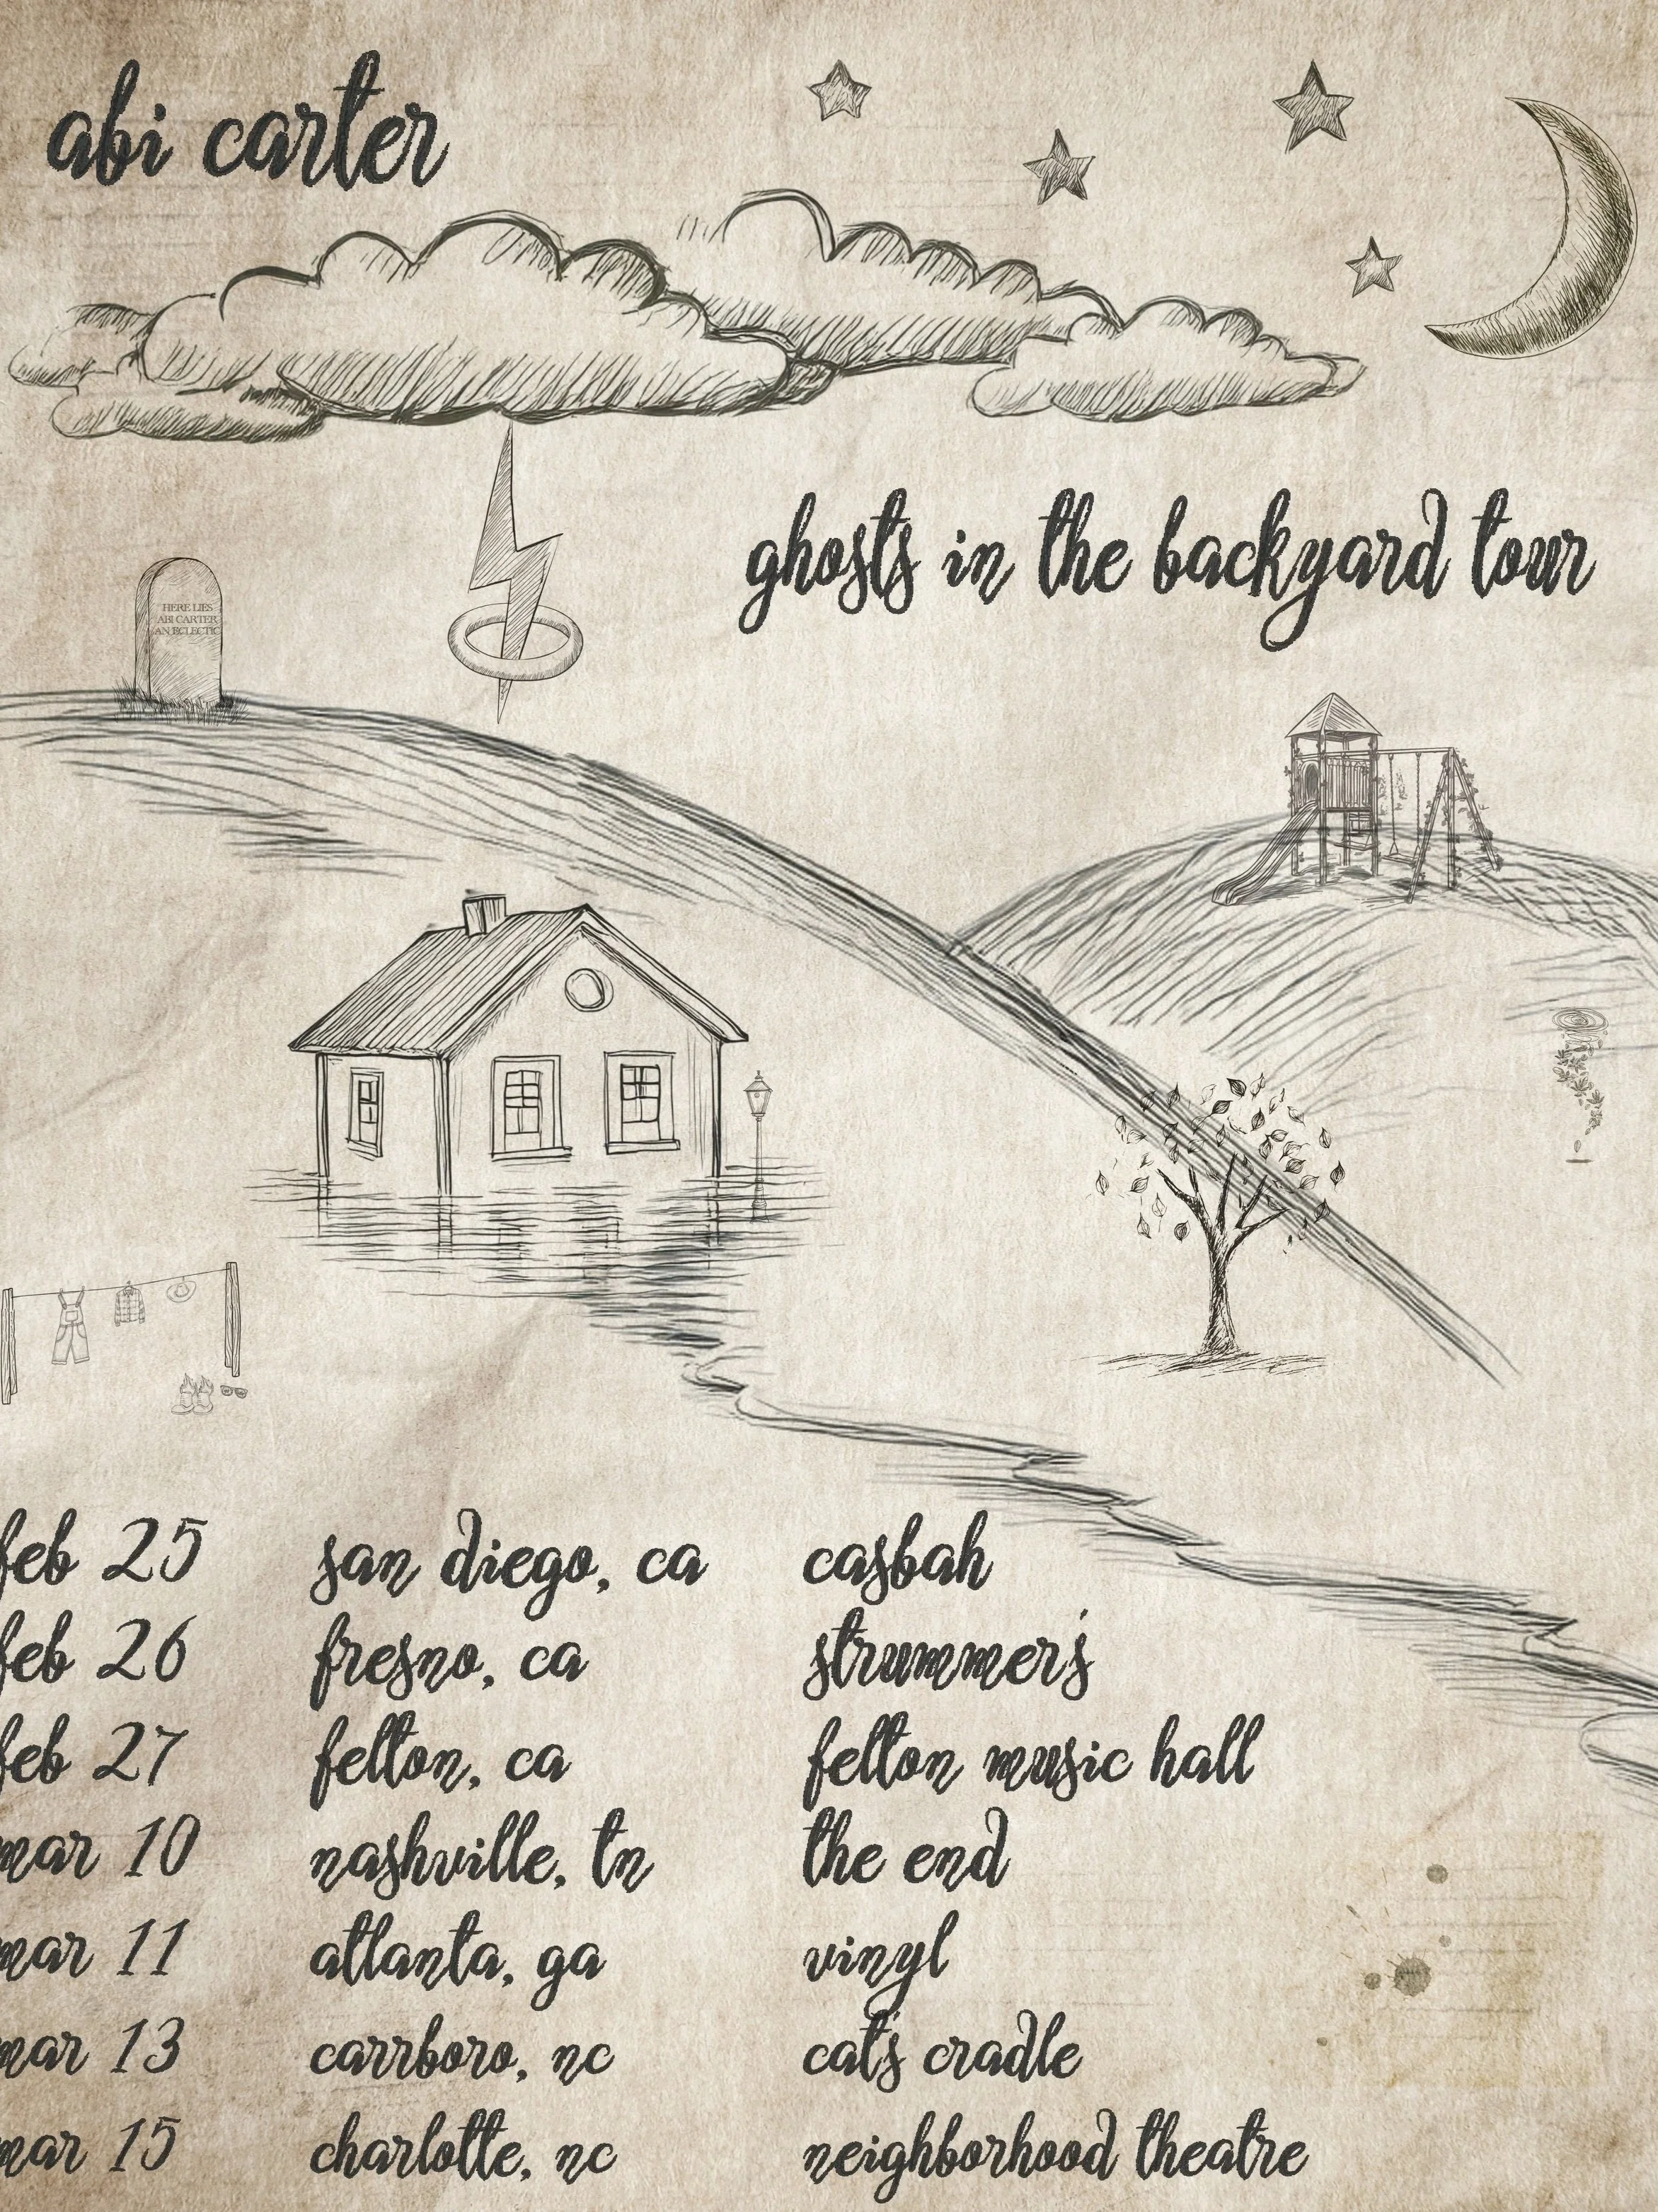 abi carter
ghosts in the backyard tour
HERE LIES
ABI CARTER
AN ECLECTIC
feb 25 san diego, ca casbah
feb 26 fresno, ca strummer's
feb 27 felton, ca felton music hall
mar 10 nashville, tn the end
mar 11 atlanta, ga vinyl
mar 13 carrboro, nc cat's cradle
mar 15 charlotte, nc neighborhood theatre